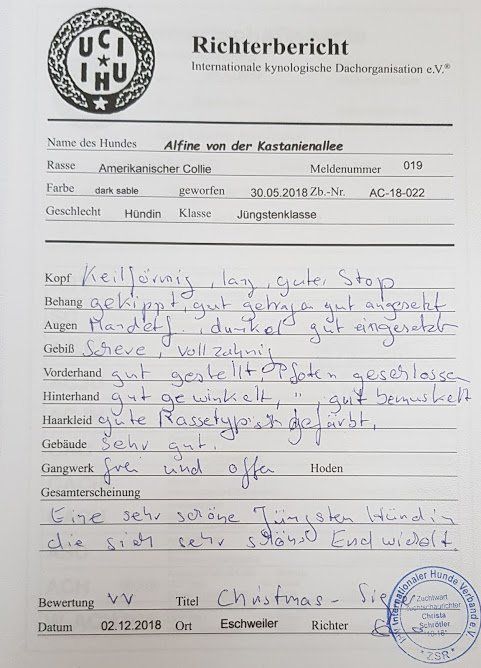 UCI
IHU
Richterbericht
Internationale kynologische Dachorganisation e.V.®
Name des Hundes Alfine von der Kastanienallee
Rasse Amerikanischer Collie Meldenummer 019
Farbe dark sable geworfen 30.05.2018 Zb.-Nr. AC-18-022
Geschlecht Hündin Klasse Jüngstenklasse
Kopf Keilförmig, lang, guter Stop
Behang gekippt, gut getragen gut angesetzt
Augen Mandelf., dunkel gut eingesetzt
Gebiß Schere, Vollzahnig
Vorderhand gut gestellt, Pfoten geschlossen
Hinterhand gut gewinkelt, ", gut bemuskelt
Haarkleid gute Rassetypisch gefärbt,
Gebäude sehr gut.
Gangwerk frei und offen Hoden
Gesamterscheinung
Eine sehr schöne Jüngsten Hündin
die sich sehr schöne Endwickelt.
Bewertung VV Titel Christmas-Sieger
Datum 02.12.2018 Ort Eschweiler Richter
Internationaler Hunde Verband e.V.
Zuchtwart
Zuchtschaurichter
Christa
Schrötler
"10-16"
*ZSR*